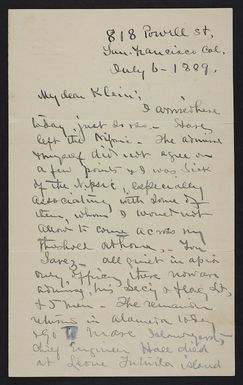 818 Powell St,
San Francisco Cal.
July 6 - 1889.
My dear Klein:
I arrived here
today, just so so - Have
left the Nipsic. The Admiral
& myself did not agree on
a few points & I was sick
of the Nipsic, especially
associating with some of
them, whom I would not
allow to come across my
threshold at home,
all quiet in apia
only, officers, there now are
admiral, his Secy & flag Lt,
& 5 men - The remainder
returns in Alameda today
& go to Mare Island yard -
Chief Engineer Hall died
at Leone Tutuila island